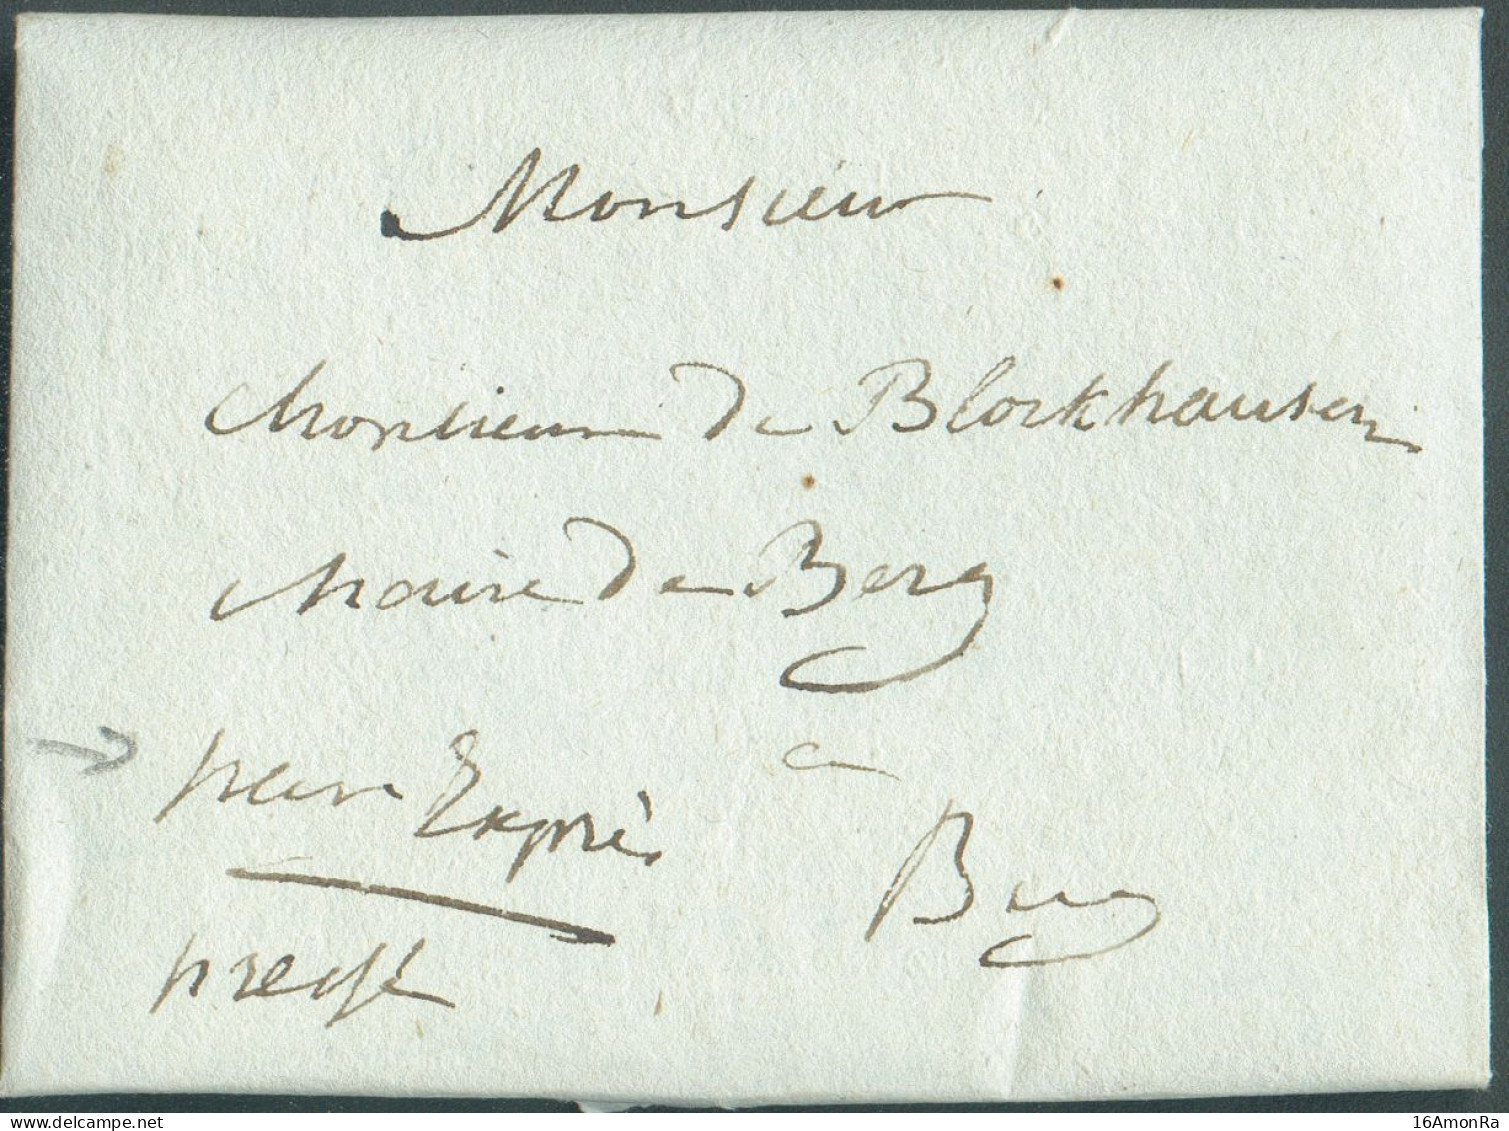 Monsieur
Monsieur de Blockhausen
Maire de Berg
a
Berg
par Exprès
pressé
16AmonRa